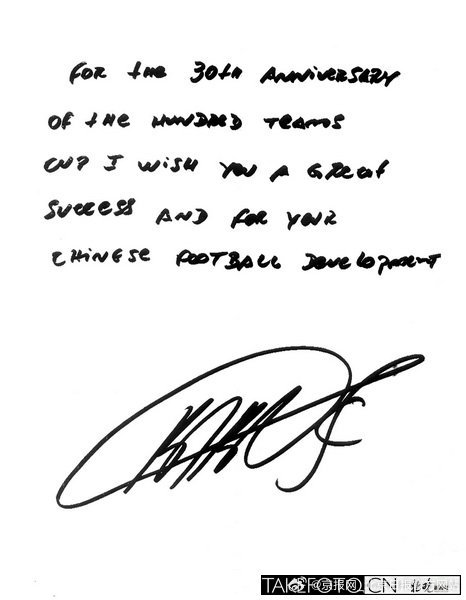 FOR the 30th ANNiVERSARY
OF the HUNDRED TEAMS
CUP I WISH YOU A GREAT
SUCCESS AND FOR YOUR
CHINESE FOOTBALL Development
TAKEFOTO.CN
@京报网